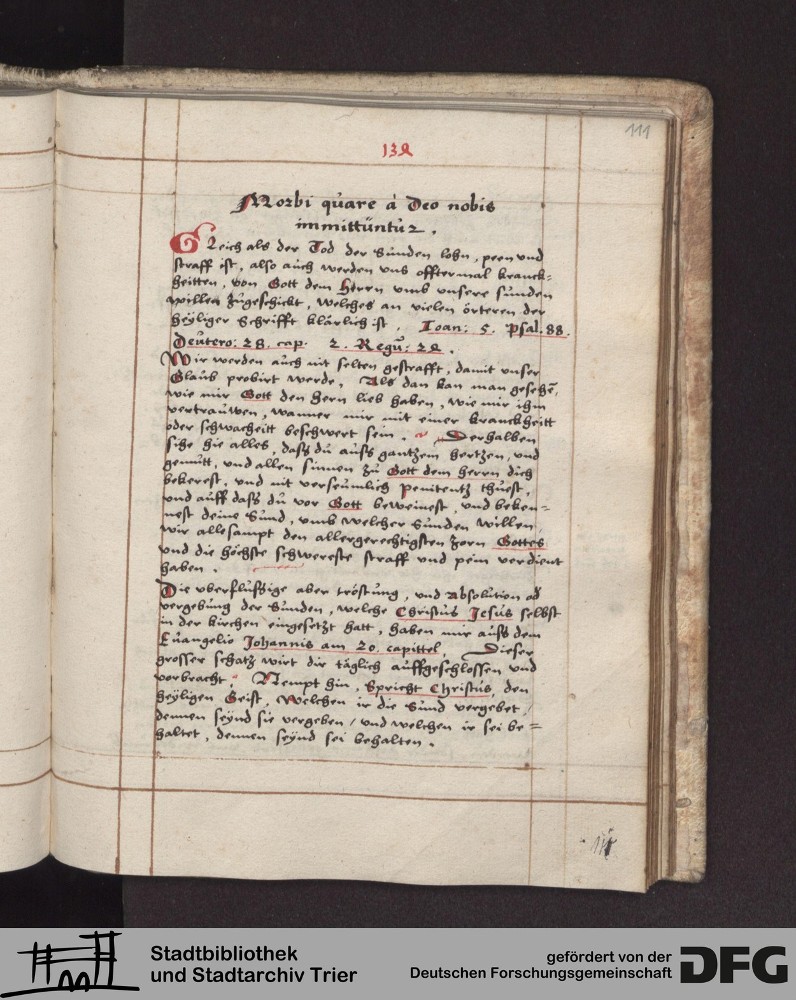 111
132
Morbi quare à Deo nobis
immittuntur.
Gleich als der Tod der Sunden lohn, peen und
straff ist, also auch werden uns offtermal kranck=
heitten, von Gott dem Herrn umb unsere sunden
willen zugeschickt, welches an vielen örteren der
heyliger Schrifft klärlich ist. Ioan: 5. Psal. 88.
Deutero: 28. cap. 2. Regū: 24.
Wir werden auch nit selten gestrafft, damit unser
Glaub probirt werde, Als dan kan man gesehē,
wie mir Gott den hern lieb haben, wie mir ihm
vertrauwen, wanner mir mit einer kranckheitt
oder schwacheitt beschwert sein. Derhalben
sihe hie alles, dass du auss gantzem hertzen, und
gemutt, und allen sinnen zu Gott dem herrn dich
bekerest, und nit verseumlich penitentz thuest,
und auff dass du vor Gott beweinest, und beken=
nest deine Sund, umb welcher Sunden willen,
wir allesampt den allergerechtigsten zorn Gottes
und die höchste schwereste straff und pein verdient
haben.
Die uberflussige aber tröstung, und Absolution od
vergebung der Sunden, welche Christus Jesus selbst
in der kirchen eingesetzt hatt, haben mir auss dem
Euangelio Johannis am 20. capittel, Dieser
grosser schatz wirt dir täglich auffgeschlossen und
vorbracht. Nempt hin, Spricht Christus, den
heyligen Geist, Welchen ir die Sund vergebet,
dennen seynd sie vergeben, und welchen ir sei be=
haltet, dennen seynd sei behalten.
Stadtbibliothek
und Stadtarchiv Trier
gefördert von der
Deutschen Forschungsgemeinschaft
DFG